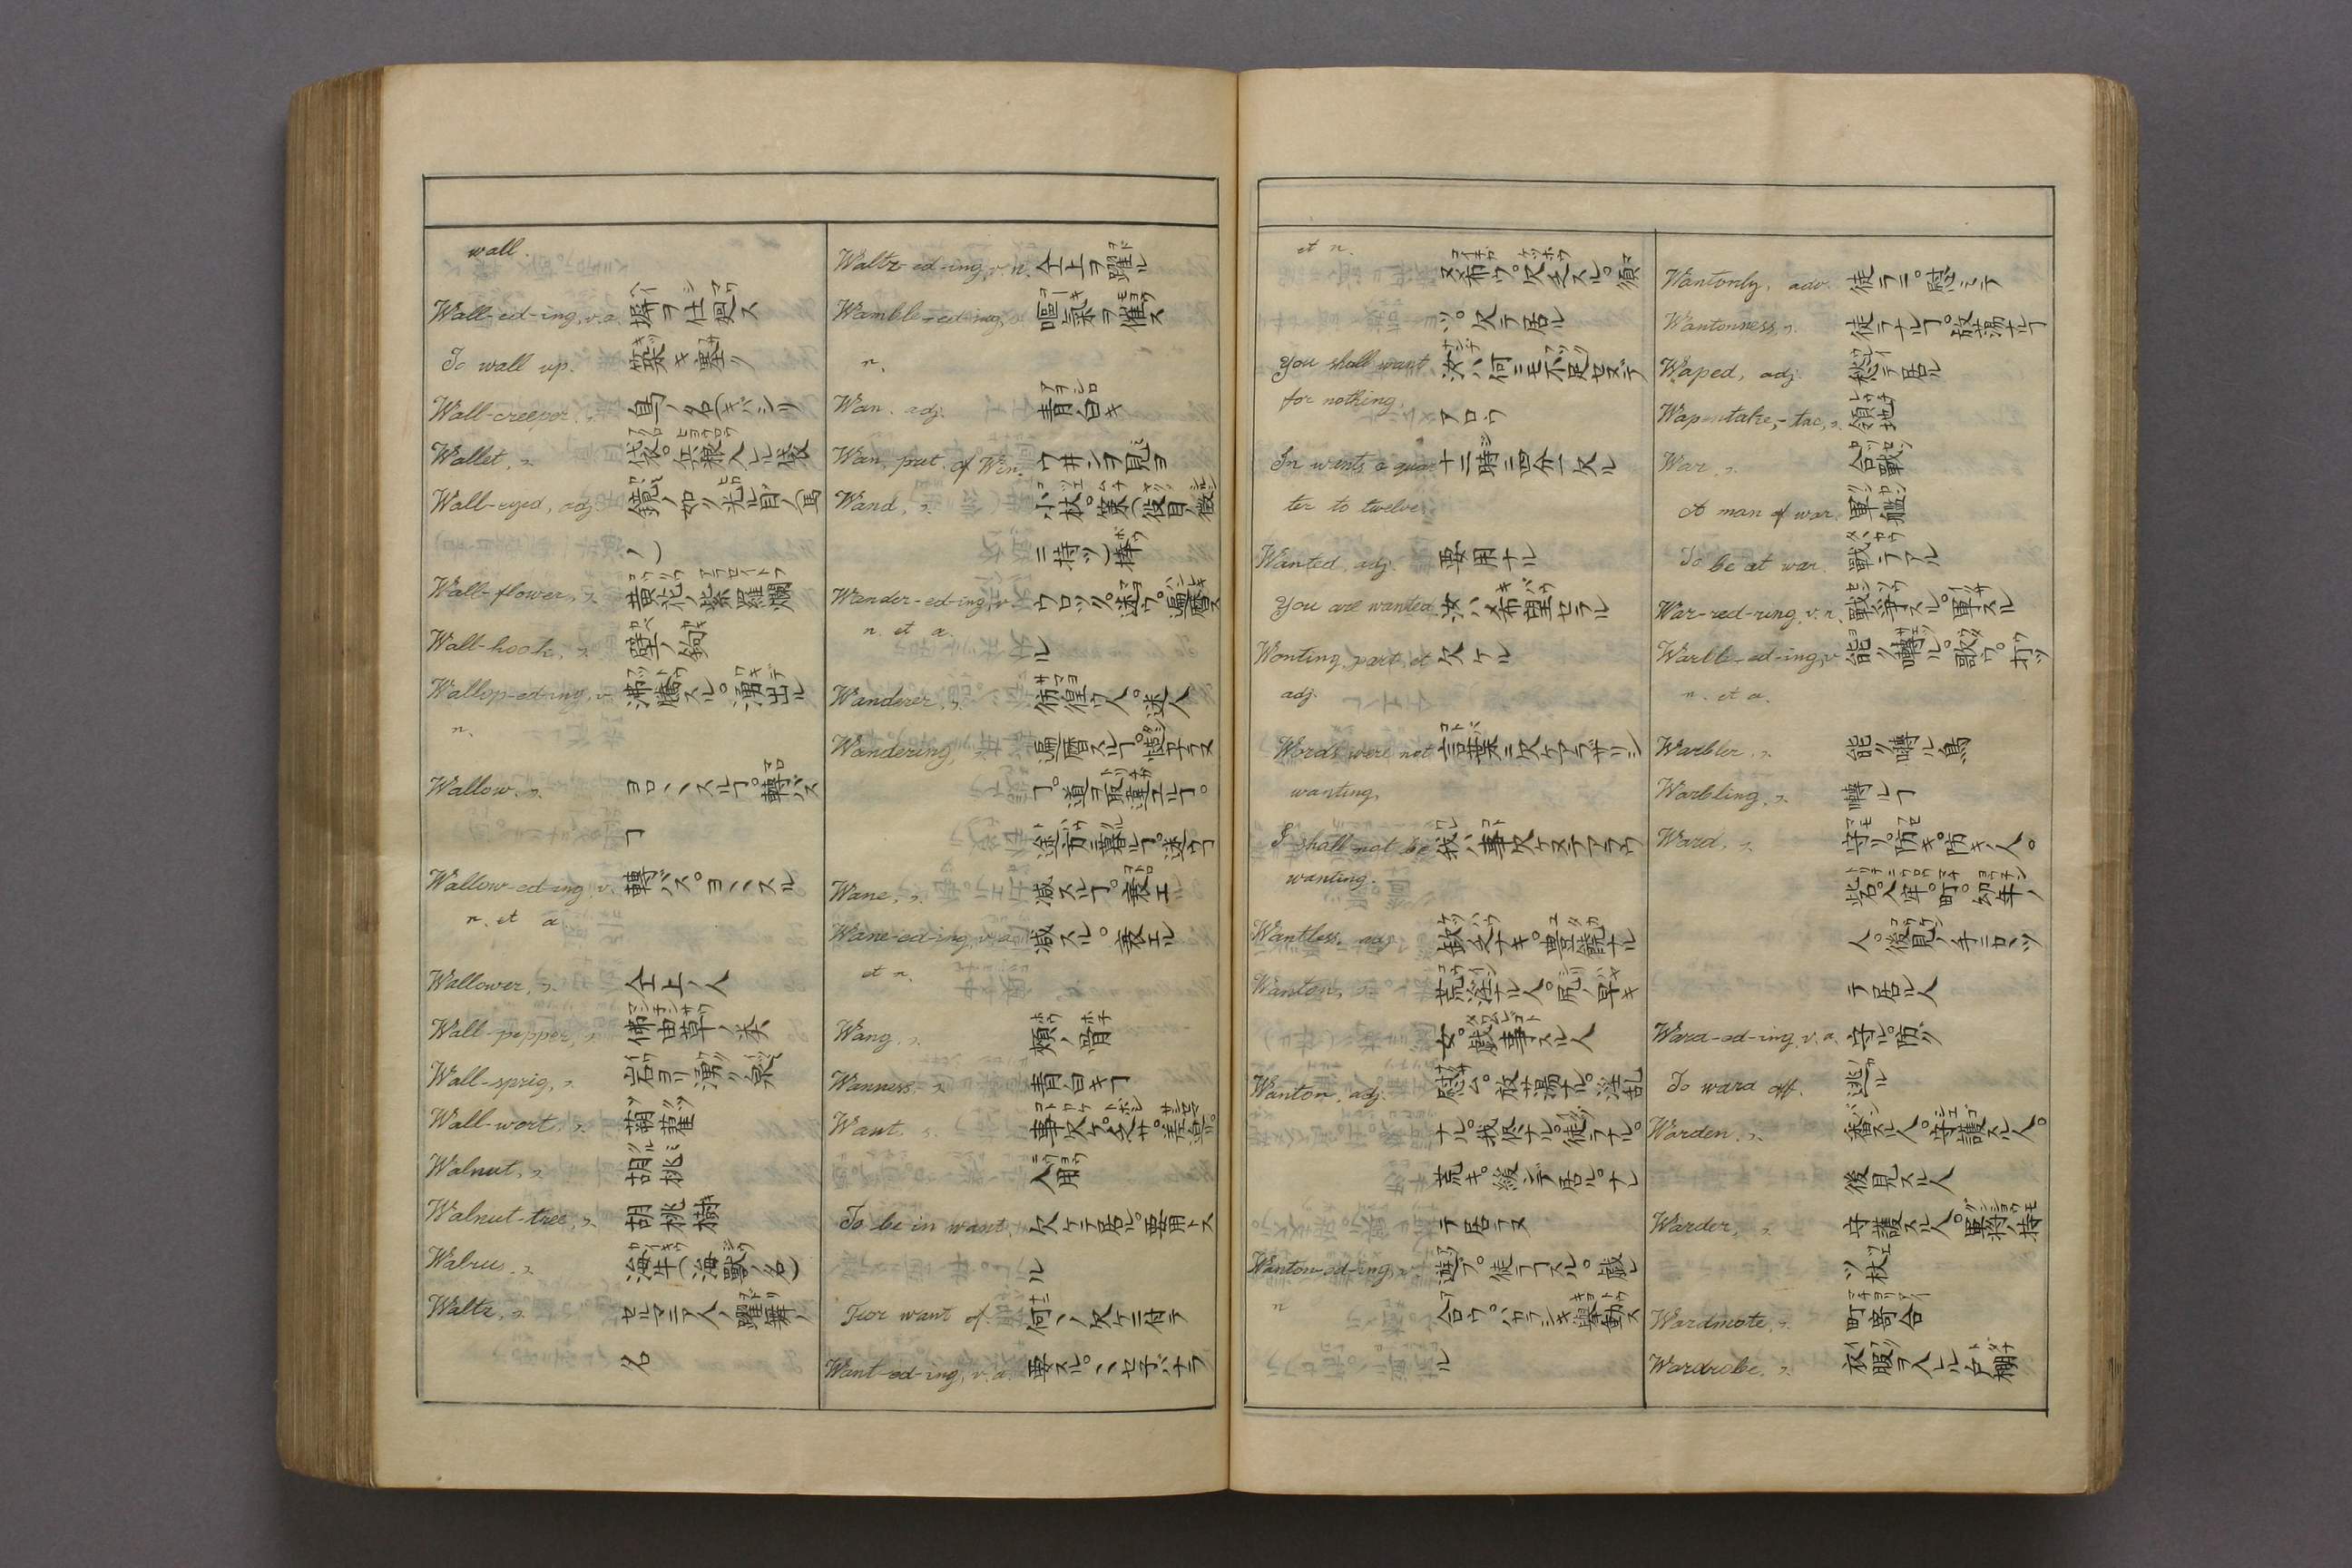 wall.
Wall-ed-ing, v.a. 塀ヲ仕廻ス
To wall up. 築キ塞ク
Wall-creeper. s. 鳥ノ名(キバシリ)
Wallet, s. 袋。兵粮入レル袋
Wall-eyed, adj. 鏡ノ如ク光ル眥ノ(馬
ノ)
Wall-flower, s. 黄花ノ紫羅欄
Wall-hook, s. 壁ノ鉤
Wallop-ed-ing, v. 沸騰スル。湧出ル
n.
Wallow. s. ヨロヘスルヿ。轉バス
ヿ
Wallow-ed-ing, v. 轉バス。ヨロヘスル
n. et a.
Wallower, s. 仝上ノ人
Wall-pepper, s. 佛甲草ノ类
Wall-sprig, s. 岩ヨリ湧ク泉
Wall-wort, s. 蒴藋
Walnut, s. 胡桃
Walnut-tree, s. 胡桃樹
Walrus, s. 海牛(海獸ノ名)
Waltz, s. ゼルマニア人ノ躍舞ノ
名
Waltz-ed-ing, v.n. 仝上ヲ躍ル
Wamble-ed-ing, 嘔氣ヲ催ス
n.
Wan. adj. 青白キ
Wan, pret. of Win. ウヰンヲ見ヨ
Wand, s. 小杖。策(役目ノ徴
ニ持ツ)棒
Wander-ed-ing, v. ウロツク。迷ウ。遍歴ス
n. et a. ル
Wanderer, s. 彷徨ウ人。迷人
Wandering, 遍歴スルヿ。
ヿ。道ヲ取違エルヿ。
途方ニ暮ルヿ。迷ウヿ
Wane, s. 减スルヿ。衰エ
Wane-ed-ing, v.a. 减スル。衰エル
et n.
Wang, s. 頬ノ骨
Wanness, s. 青白キヿ
Want. s. 事欠ケ。乏サ。差逼リ。
入用
To be in want. 欠ケテ居ル。要用トス
ル
For want of. 何ヘノ欠ケニ付テ
Want-ed-ing, v.a. 要スル。ヘセ子バナラ
et n. ヌ。希ウ。欠乏スル。須
ツ。欠テ居ル
You shall want 汝ハ何ニモ不足セズテ
for nothing. アロウ
In wants a quar- 十二時ニ四分一欠ル
ter to twelve
Wanted, adj. 要用ナル
You are wanted 汝ハ希望セラル
Wanting, part. et 欠ケル
adj.
Words were not 言葉ニ欠ケアラザリシ
wanting.
I shall not be 我ハ事欠ケズテアラウ
wanting.
Wantless, adj. 缺乏ナキ。豊饒ナル
Wanton, s. 荒淫ナル人。尻ノ早キ
女。戯事スル人
Wanton, adj. 放蕩ナル。淫乱
ナル。我侭ナル。徒ラナル。
荒キ。緩ンデ居ル。ナレ
テ居ラヌ
Wanton-ed-ing, v. 遊ブ。徒ラコスル。戯レ
n 合ウ。ハヲシキ擧動ス
ル
Wantonly, adv. 徒ラニ。
Wantonness, s. 徒ラナルヿ。放蕩ナルヿ
Waped, adj. 愁テ居ル
Wapentake,-tac, s. 領地
War, s. 合戰
A man of war. 軍艦
To be at war. 戰ヲアル
War-red-ring, v.n. 戰爭スル。軍スル
Warble-ed-ing, v. 能ク囀ル。歌ウ。打ツ
n. et a.
Warbler, s. 能ク囀ル鳥
Warbling, s. 囀ルヿ
Ward, s. 守リ。防キ。防キノ人。
砦。人牢。町。幼年ノ
人。後見ノ手ニ口ツ
テ居ル人
Ward-ed-ing, v.a. 守ル。防ク
To ward off. 逃ル
Warden, s. 番スル人。守護スル人。
後見スル人
Warder, s. 守護スル人。軍将ノ持
ツ杖
Wardmote, s. 町寄合
Wardrobe, s. 衣服ヲ入レル戸棚